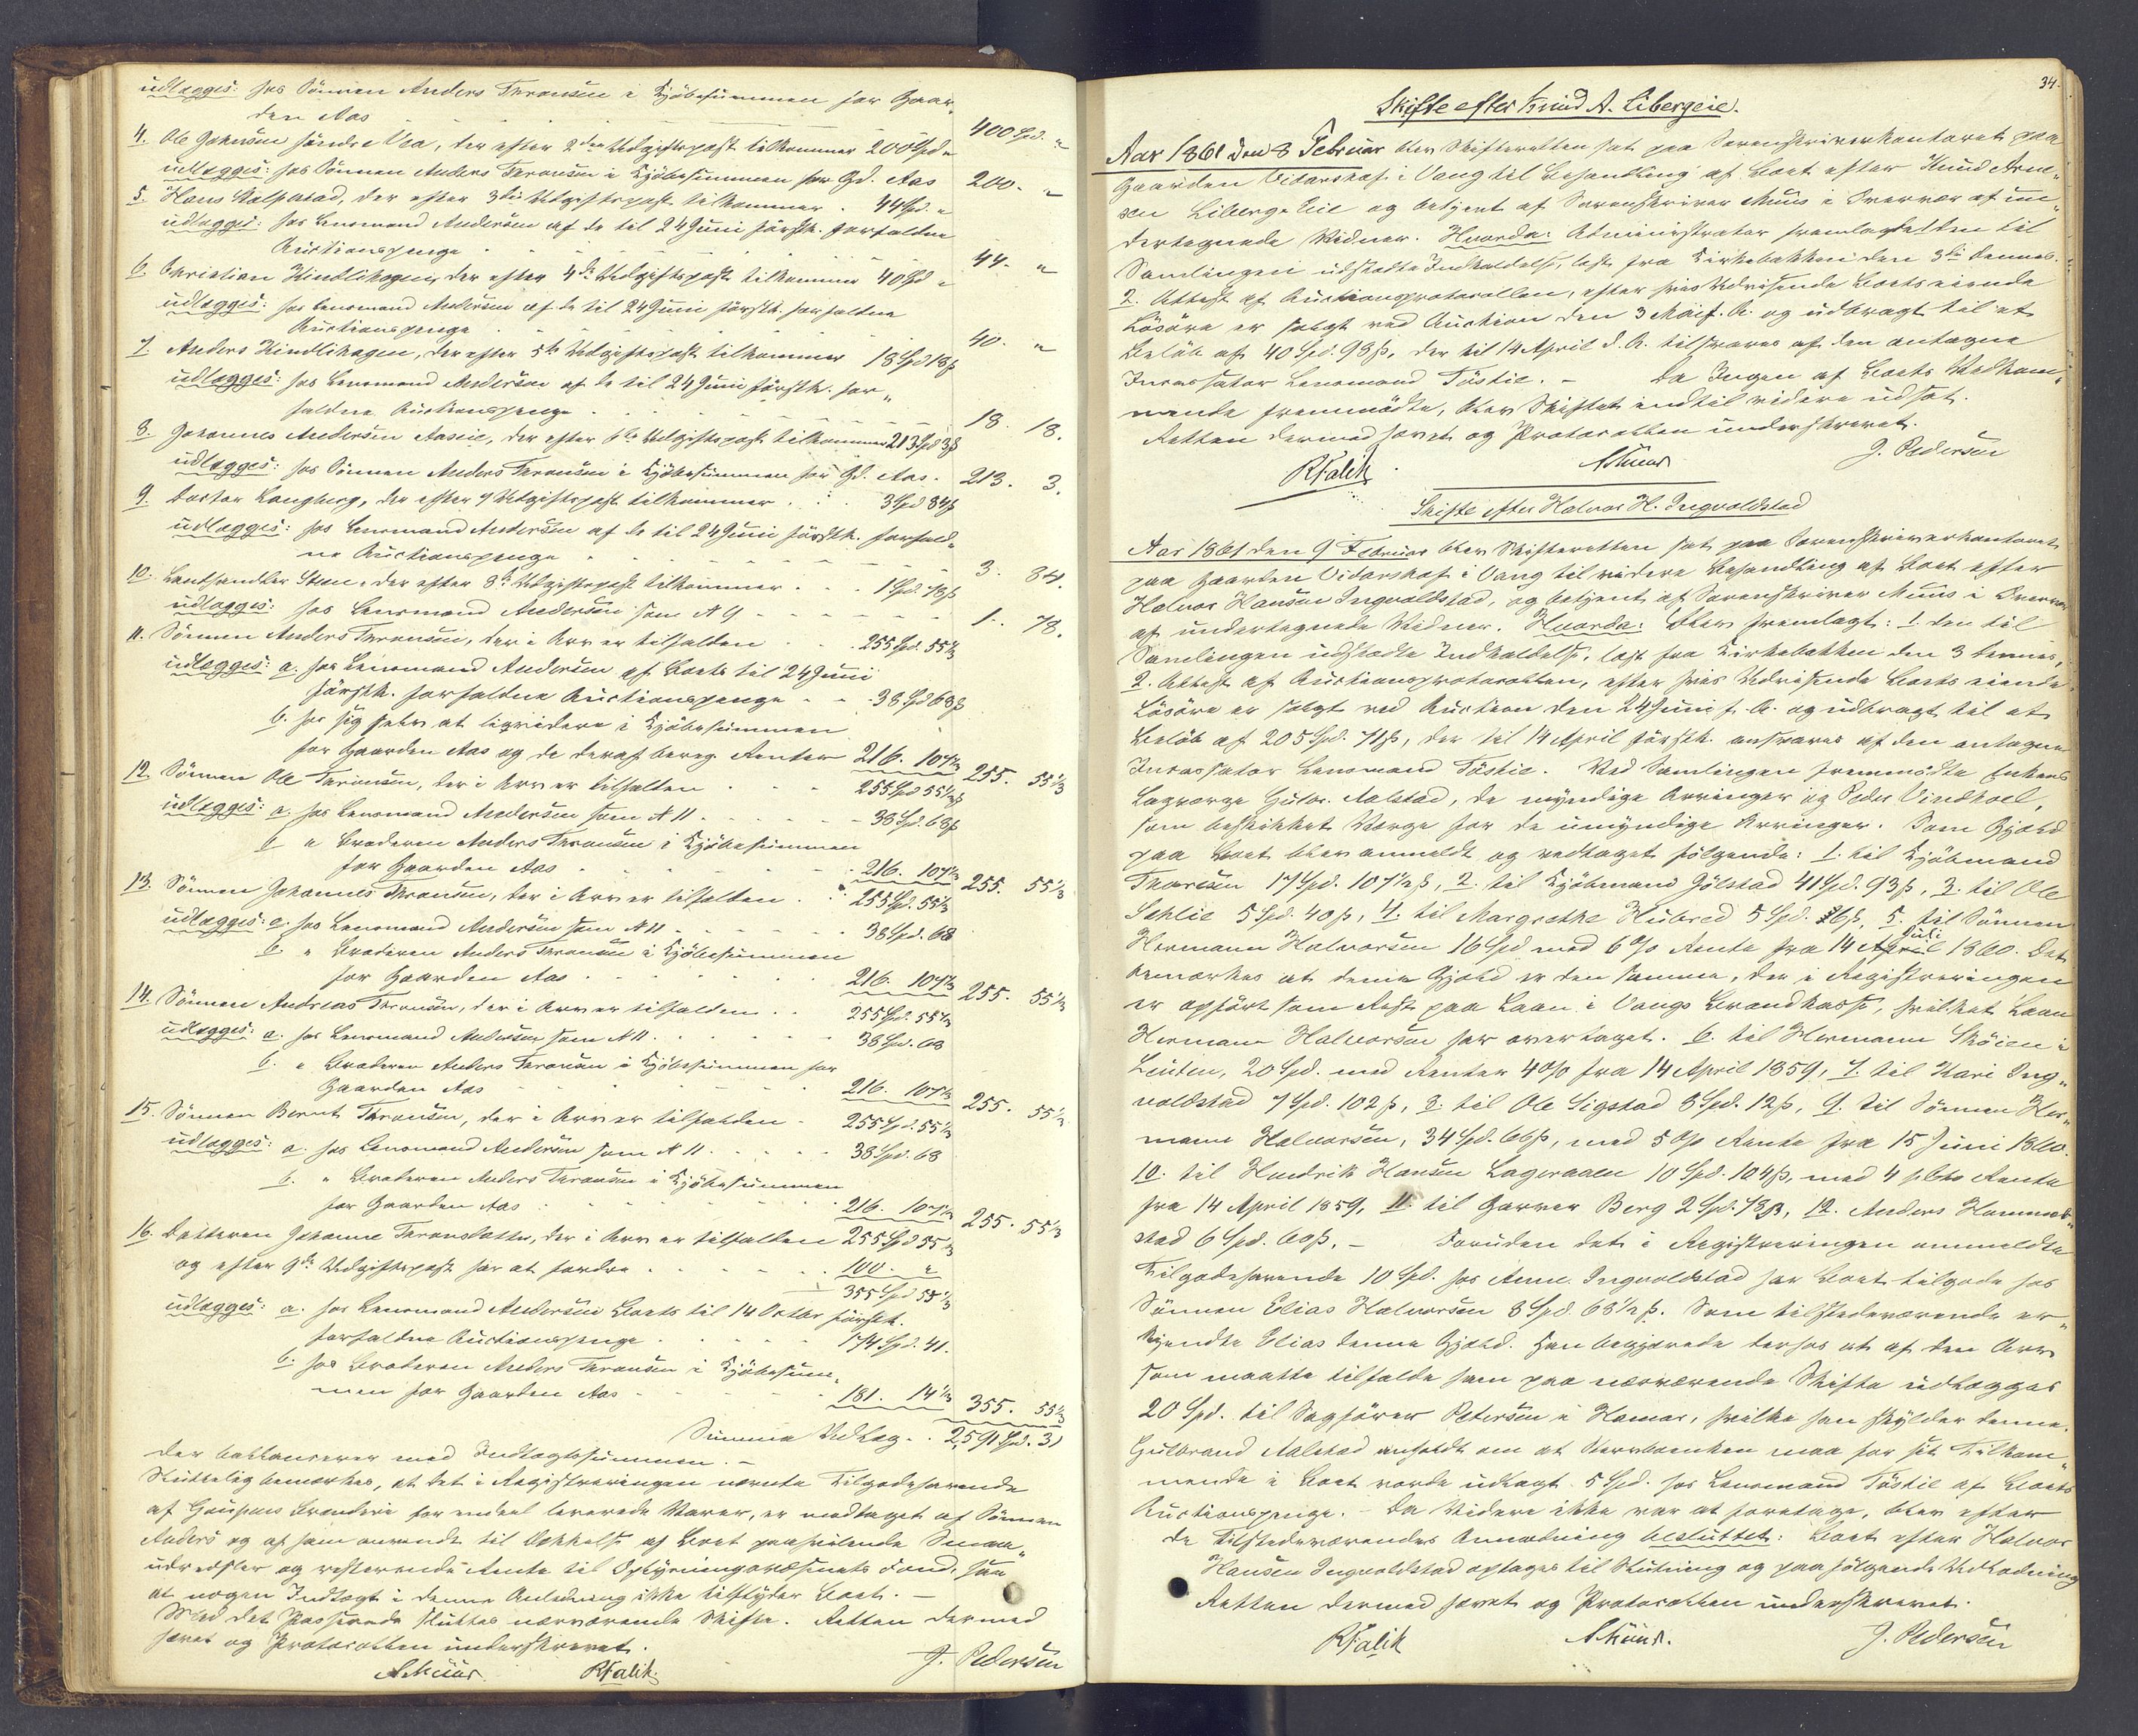 udlægges: hos Sönnen Anders Thronsen i Kjöbesummen for Gaar„
den Aas 400 Spd. „
4. Ole Johnsen söndre Vea, der efter 2den Udgiftspost tilkommer 200 Spd „
udlægges: hos Sönnen Anders Thronsen i Kjöbesummen for Gd. Aas 200. „
5. Hans Kolpstad, der efter 3die Udgiftspost tilkommer . 44 Spd. „
udlægges: hos Lensmand Andersen af de til 24 Juni förstk. forfaldne
Auctionspenge 44. „
6. Christian Kindlihagen, der efter 4de Udgiftspost tilkommer 40 Spd „
udlægges: hos Lensmand Andersen af de til 24 Juni förstk. forfaldne
Auctionspenge 40. „
7. Anders Kindlihagen, der efter 5te Udgiftspost tilkommer 18 Spd 18 ß
udlægges: hos Lensmand Andersen af de til 24 Juni förstk. for„
faldne Auctionspenge 18. 18.
8. Johannes Andersen Aaseie, der efter 6te Udgiftspost tilkommer 213 Spd 3 ß
udlægges: hos Sönnen Anders Thronsen i Kjöbesummen for Gd. Aas. 213. 3.
9. Doctor Langberg, der efter 7 Udgiftspost tilkommer 3 Spd 84 ß
udlægges: hos Lensmand Andersen af de til 24 Juni förstk. forfald„
ne Auctionspenge 3. 84.
10. Landhandler Steen, der efter 8de Udgiftspost tilkommer 1 Spd. 78 ß
udlægges: hos Lensmand Andersen som N 9 1. 78.
11. Sönnen Anders Thronsen, der i Arv er tilfalden 255 Spd. 55 1/3
udlægges: a. hos Lensmand Andersen af Boets til 24 Juni
förstk. forfaldne Auctionspenge 38 Spd 68 ß
b. hos sig selv at liqvidere i Kjöbesummen
for Gaarden Aas og de deraf bereg. Renter 216. 107 1/3 255. 55 1/3
12. Sönnen Ole Thronsen, der i Arv er tilfalden 255 Spd 55 1/3 ß
udlægges: a. hos Lensmand Andersen som N 11 38 Spd. 68 ß
b „ Broderen Anders Thronsen i Kjöbesummen
for Gaarden Aas 216. 107 1/3 255. 55 1/3
13. Sönnen Johannes Thronsen, der i Arv er tilfalden 255 Spd. 55 1/3
udlægges: a. hos Lensmand Andersen som N 11 38 Spd. 68
b. „ Broderen Anders Thronsen i Kjöbesummen
for Gaarden Aas 216. 107 1/3 255. 55 1/3
14. Sönnen Andreas Thronsen, der i Arv er tilfalden 255 Spd. 55 1/3
udlægges: a. hos Lensmand Andersen som N 11 38 Spd. 68
b. „ Broderen Anders Thronsen i Kjöbesummen for
Gaarden Aas 216. 107 1/3 255. 55 1/3
15. Sönnen Bernt Thronsen, der i Arv er tilfalden 255 Spd. 55 1/3
udlægges: a. hos Lensmand Andersen som N 11 38 Spd. 68
b. „ Broderen Anders Thronsen i Kjöbesummen
for Gaarden Aas 216. 107 1/3 255. 55 1/3
16. Datteren Johanne Thronsdatter, der i Arv er tilfalden 255 Spd 55 1/3
og efter 9de Udgiftspost har at fordre 100. „
355 Spd 55 1/3
udlægges: a. hos Lensmand Andersen Boets til 14 Octbr förstk.
forfaldne Auctionspenge 174 Spd. 41.
b. hos Broderen Anders Thronsen i Kjöbesum„
men for Gaarden Aas 181. 14 1/3 355. 55 1/3
Summa Udlæg 2,591 Spd. 31
der ballancerer med Indtægtssummen. –
Sluttelig bemærkes, at det i Registreringen nævnte Tilgodehavende
af Brænderi for endeel leverede Varer, er modtaget af Sönnen
Anders og af ham anvendt til Dækkelse af Boet paahvilende Smaa„
udredsler og resterende Rente til Oplysningsvæsenets Fond, saa
at nogen Indtægt i denne Anledning ikke tilflyder Boet. –
Med det Passerede sluttes nærværende Skifte. Retten dermed
hævet og Protocollen underskrevet.
AMuus. RFalik J. Pedersen
34.
Skifte efter Knud A. Libergeie.
Aar 1861 den 8 Februar blev Skifteretten sat paa Sorenskriverkontoret paa
Gaarden Vidarshof i Vang til Behandling af Boet efter Knud Arne„
sen Liberg Eie og betjent af Sorenskriver Muus i Overvær af un„
dertegnede Vidner. Hvorda: Administrator fremlagde den til
Samlingen udstædte Indkaldelse, læst fra Kirkebakken den 3die dennes.
2. Attest af Auctionsprotocollen, efter hvis Udvisende Boets eiende
Lösöre er solgt ved Auction den 3 Mai f. A. og udbragt til et
Belöb af 40 Spd. 98 ß, der til 14 April d. A. tilsvares af den antagne
Incassator Lensmand Töstie. – Da Ingen af Boets Vedkom„
mende fremmödte, blev Skiftet indtil videre udsat.
Retten dermed hævet og Protocollen underskrevet.
RFalik AMuus J. Pedersen
Skifte efter Halvor H. Ingvoldstad
Aar 1861 den 9 Februar blev Skifteretten sat paa Sorenskriverkontoret
paa Gaarden Vidarshof i Vang til videre Behandling af Boet efter
Halvor Hansen Ingvoldstad, og betjent af Sorenskriver Muus i Overvær
af undertegnede Vidner. Hvorda: Blev fremlagt: 1. den til
Samlingen udstædte Indkaldelse, læst fra Kirkebakken den 3 dennes,
2. Attest af Auctionsprotocollen, efter hvis Udvisende Boets eiende
Lösöre er solgt ved Auction den 24 Juni f. A. og udbragt til et
Belöb af 205 Spd. 71 ß, der til 14 April förstk. ansvares af den antagne
Incassator Lensmand Töstie. Ved Samlingen fremmödte Enkens
Laugværge Gulbr. Aalstad, de myndige Arvinger og Peder Vindhoel,
som beskikket Værge for de umyndige Arvinger. Som Gjæld
paa Boet blev anmeldt og vedtaget fölgende: 1. til Kjöbmand
Thoresen 17 Spd. 107 1/2 ß, 2. til Kjöbmand Gölstad 41 Spd. 93 ß, 3. til Ole
Sehlie 5 Spd. 40 ß, 4. til Margrethe Hubred 5 Spd. 36 ß, 5. til Sönnen
Hermann Halvorsen 16 Spd med 6 % Rente fra 14 Juli 1860. Det
bemærkes at denne Gjæld er den samme, der i Registreringen
er opfört som Rest paa Laan i Vangs Brandkasse, hvilket Laan
Hermann Halvorsen har overtaget. 6. til Hermann Sköien i
Löiten, 20 Spd. med Renter 4 % fra 14 April 1859, 7. til Kari Ing„
voldstad 7 Spd. 102 ß, 8. til Ole Sigstad 8 Spd. 12 ß, 9. til Sönnen Her„
mann Halvorsen, 34 Spd. 66 ß, med 5 % Rente fra 15 Juni 1860.
10. til Hendrik Hansen Lageraaen 10 Spd. 104 ß, med 4 pCto Rente
fra 14 April 1859, 11. til Garver Berg 2 Spd. 78 ß, 12. Anders Hommel„
stad 6 Spd. 60 ß. – Foruden det i Registreringen anmeldte
Tilgodehavende 10 Spd. hos Anne Ingvoldstad har Boet tilgode hos
Sönnen Elias Halvorsen 8 Spd. 68 1/2 ß. Som tilstedeværende er„
kjendte Elias denne Gjæld. Han begjærede derhos at af den Arv
som maatte tilfalde ham paa nærværende Skifte udlægges
20 Spd. til Sagförer Petersen i Hamar, hvilke han skylder denne.
Gulbrand Aalstad anholdt om at maa for sit Tilkom„
mende i Boet vorde udlagt 5 Spd. hos Lensmand Töstie af Boets
Auctionspenge. – Da Videre ikke var at foretage, blev efter
de Tilstedeværendes Anmodning besluttet: Boet efter Halvor
Hansen Ingvoldstad optages til Slutning og paafölgende Udlodning
Retten dermed hævet og Protocollen underskrevet.
RFalik AMuus. J. Pedersen